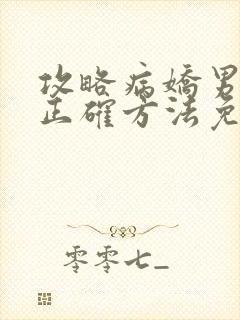 攻略病嬌男
正確方法免
零零七_